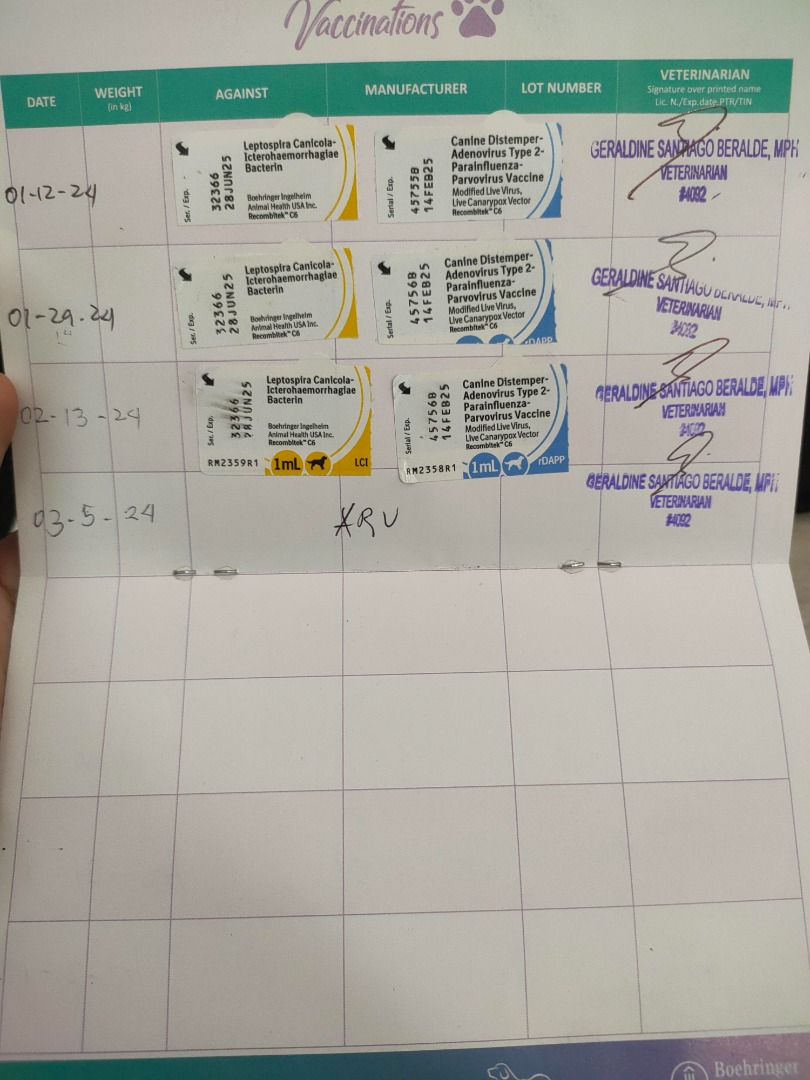 Vaccinations
DATE
WEIGHT
(in kg)
AGAINST
MANUFACTURER
LOT NUMBER
VETERINARIAN
Signature over printed name
Lic. N./Exp.date PTR/TIN
01-12-24
Ser. / Exp.
32366
28JUN25
Leptospira Canicola-
Icterohaemorrhagiae
Bacterin
Boehringer Ingelheim
Animal Health USA Inc.
Recombitek™ C6
Serial / Exp.
45755B
14FEB25
Canine Distemper-
Adenovirus Type 2-
Parainfluenza-
Parvovirus Vaccine
Modified Live Virus,
Live Canarypox Vector
Recombitek™ C6
GERALDINE SANTIAGO BERALDE, MPH
VETERINARIAN
01-29-24
Ser. / Exp.
32366
28JUN25
Leptospira Canicola-
Icterohaemorrhagiae
Bacterin
Boehringer Ingelheim
Animal Health USA Inc.
Recombitek™ C6
Serial / Exp.
45756B
14FEB25
Canine Distemper-
Adenovirus Type 2-
Parainfluenza-
Parvovirus Vaccine
Modified Live Virus,
Live Canarypox Vector
Recombitek™ C6
rDAPP
GERALDINE SANTIAGO BERALDE, MPH
VETERINARIAN
02-13-24
Ser. / Exp.
32366
28JUN25
Leptospira Canicola-
Icterohaemorrhagiae
Bacterin
Boehringer Ingelheim
Animal Health USA Inc.
Recombitek™ C6
RM2359R1
1mL
LCI
Serial / Exp.
45756B
14FEB25
Canine Distemper-
Adenovirus Type 2-
Parainfluenza-
Parvovirus Vaccine
Modified Live Virus,
Live Canarypox Vector
Recombitek™ C6
RM2358R1
1mL
rDAPP
GERALDINE SANTIAGO BERALDE, MPH
VETERINARIAN
03-5-24
ARV
GERALDINE SANTIAGO BERALDE, MPH
VETERINARIAN
Boehringer